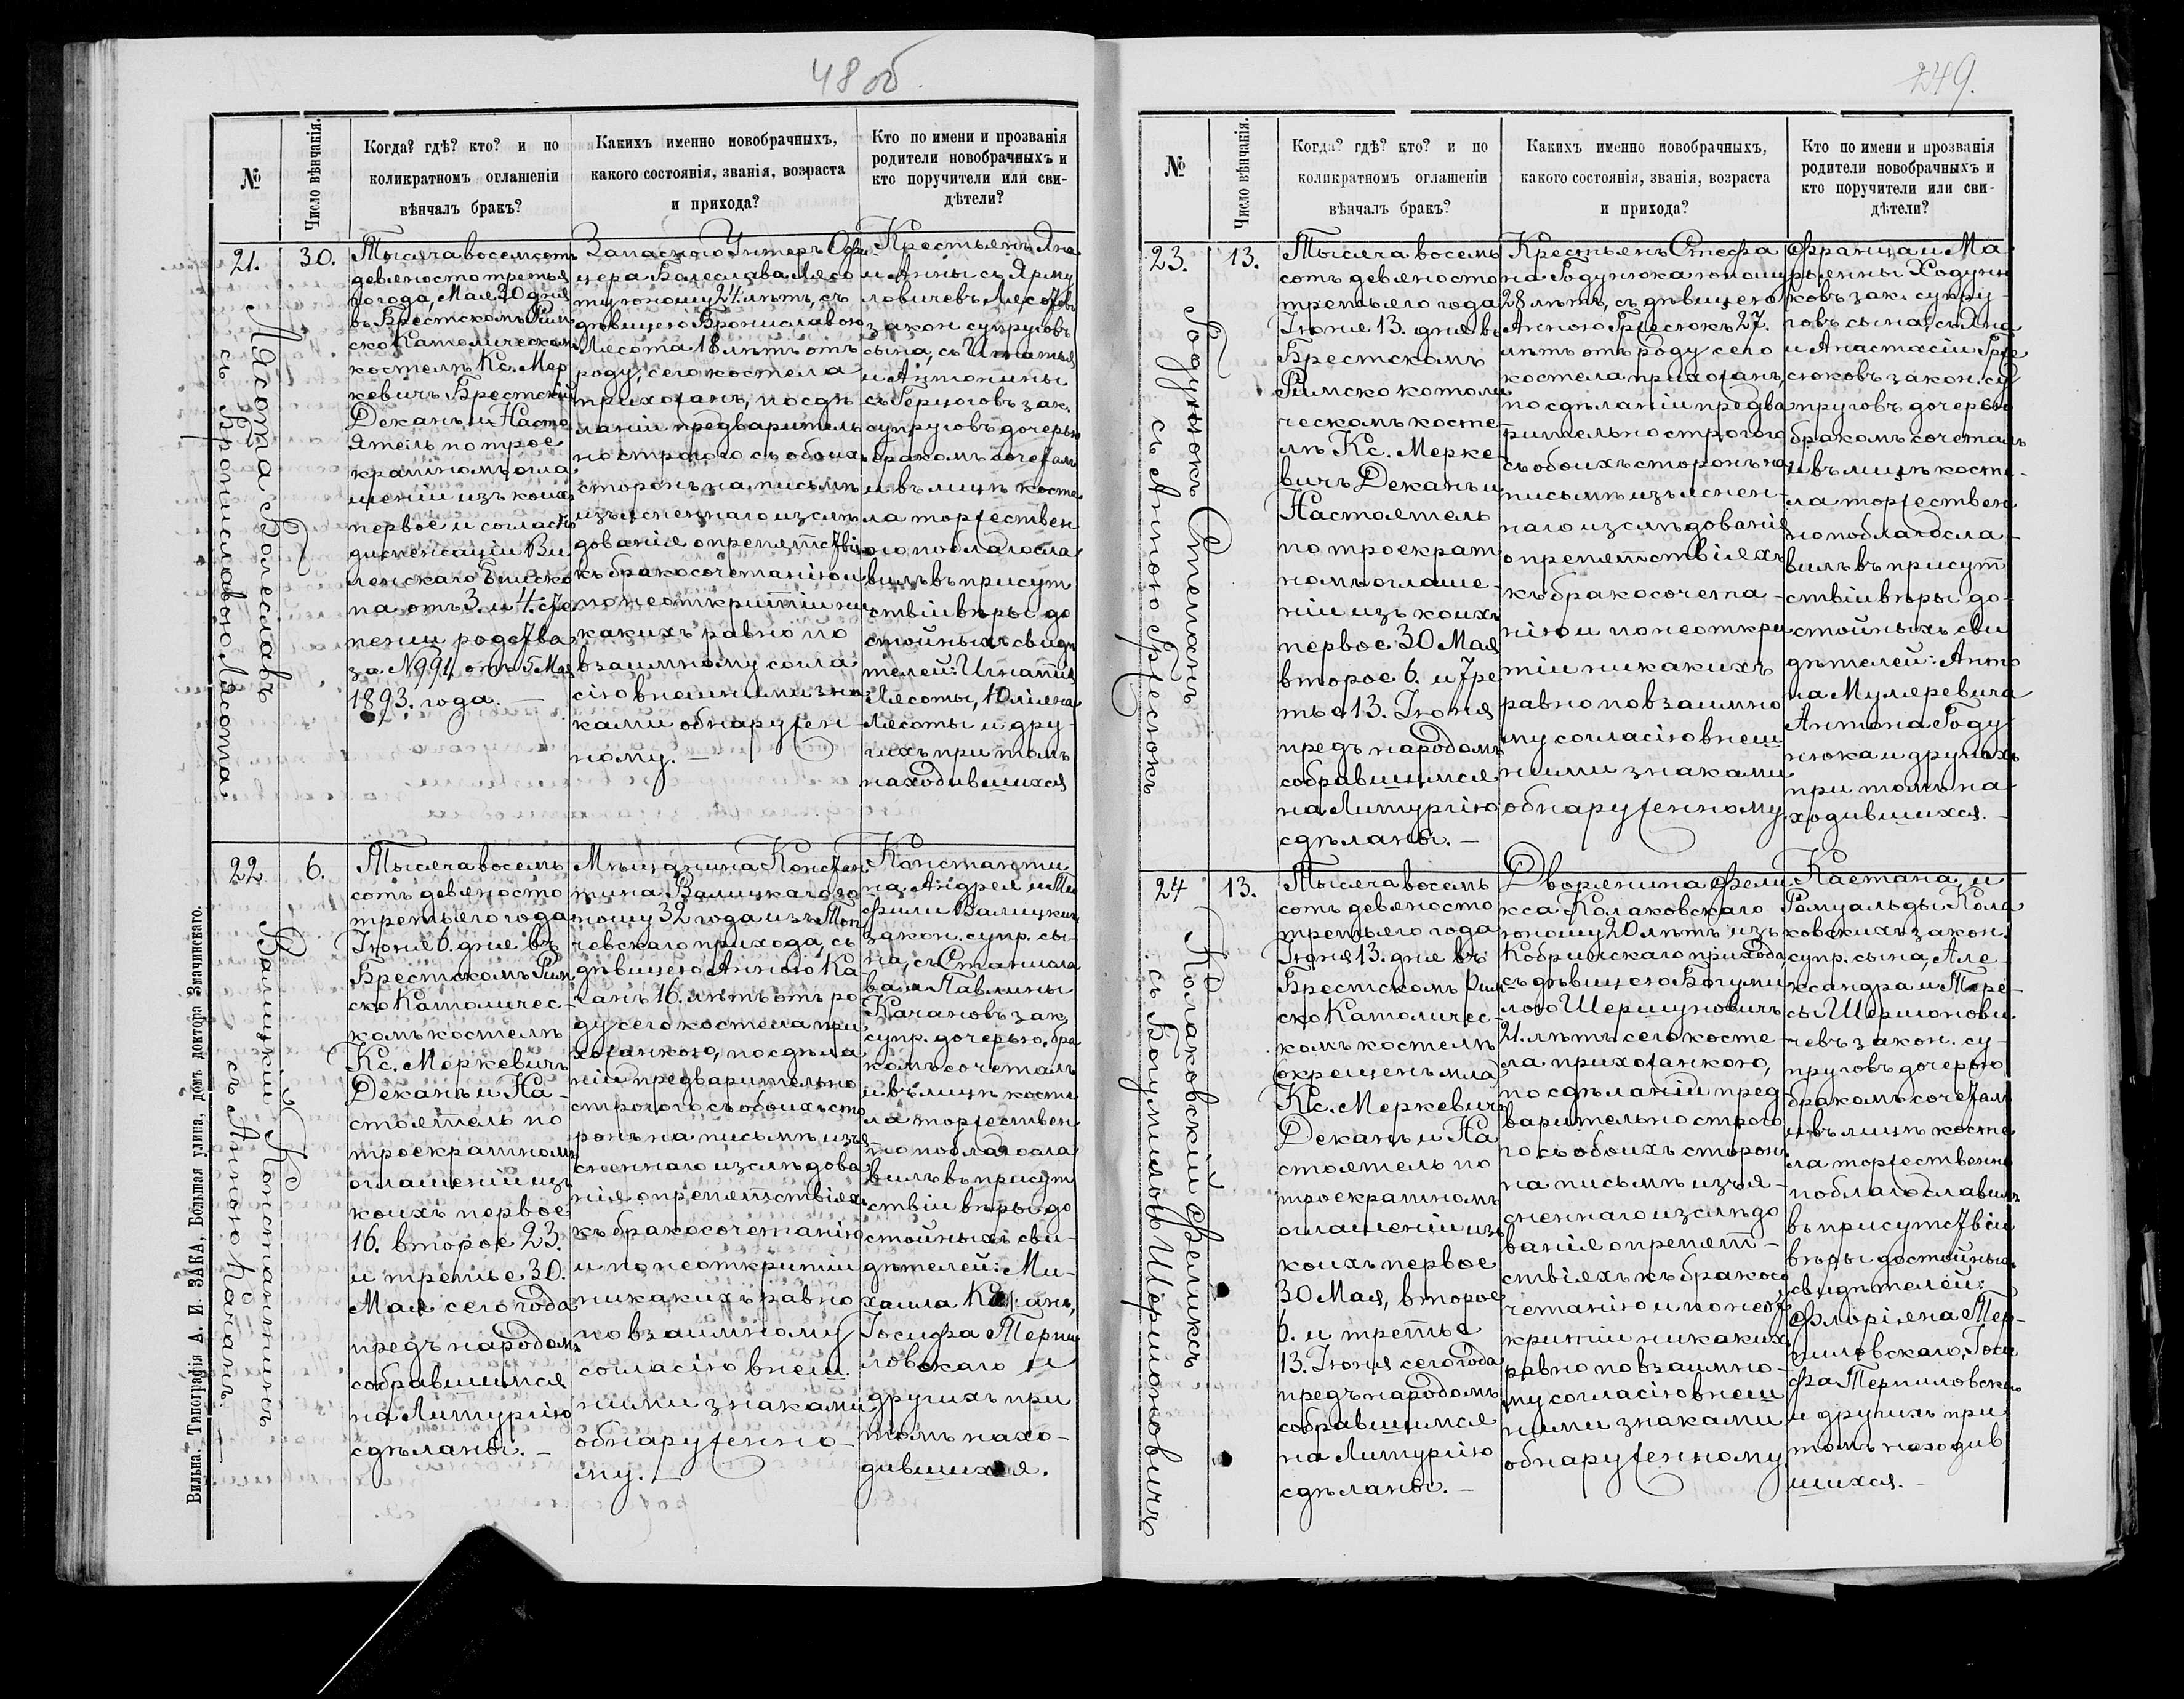 48 об.
№
Число вѣнчанія.
Когда? гдѣ? кто? и по
коликратномъ оглашеніи
вѣнчалъ бракъ?
Какихъ именно новобрачныхъ,
какого состоянія, званія, возраста
и прихода?
Кто по имени и прозванія
родители новобрачныхъ и
кто поручители или сви-
дѣтели?
21.
Лясота Болеславъ
съ Брониславою Лясота
30.
Тысяча восемьсотъ
девяносто третья
го года, Мая 30 дня
въ Брестскомъ Рим
ско Католическомъ
костелѣ Кс. Мер
кевичъ Брестскій
Деканъ и Насто
ятель по трое
кратномъ огла
шеніи изъ коихъ
первое и согласно
диспенсаціи Ви
ленскаго Еписко
па отъ 3. и 4. сте
пени родства
за № 991 отъ 5 Мая
1893. года.
Запаснаго Унтеръ Офи
цера Болеслава Лясо
ту юношу 24. лѣтъ, съ
дѣвицею Брониславою
Лясота 18 лѣтъ отъ
роду, сего костела
прихожанъ, по сдѣ
ланіи предваритель
но строгого съ обоихъ
сторонъ на письмѣ
изъясненнаго изслѣ
дованія о препятствіяхъ
къ бракосочетанію и
по неоткрытіи ни
какихъ равно по
взаимному согла
сію внешними зна
ками обнаружен
ному. —
Крестьянъ Яна
и Анны съ Ярму
ловичевъ Лясотовъ
закон. супруговъ
сына, съ Игнатья
и Антонины
съ Герцоговъ зак.
супруговъ дочерью
бракомъ сочеталъ
и въ лицѣ косте
ла торжествен
но поблагосла
вилъ въ присут
ствіи вѣры до
стойныхъ свидѣ
телей: Игнатія
Лясоты, Юліяна
Лясоты и дру
гихъ при томъ
находившихся
22
Валицкій Константинъ
съ Анною Качанъ.
6.
Тысяча восемь
сотъ девяносто
третьяго года
Іюня 6. дня въ
Брестскомъ Рим
ско Католичес-
комъ костелѣ
Кс. Меркевичъ
Деканъ и На-
стоятель по
троекратномъ
оглашеніи изъ
коихъ первое
16. второе 23.
и третье 30.
Мая сего года
предъ народомъ
собравшимся
на Литургію
сдѣланы. —
Мѣщанина Констан
тина Валицкаго ю
ношу 32 года изъ
чевскаго прихода, съ
дѣвицею Анною Ка
чанъ 16. лѣтъ отъ ро
ду сего костела при
хожанкою, по сдѣла
ніи предварительно
строгого съ обоихъ сто
ронъ на письмѣ изъя
сненнаго изслѣдова
нія о препятствіяхъ
къ бракосочетанію
и по неоткрытіи
никакихъ равно
по взаимному
согласію внеш
ними знаками
обнаруженно-
му. —
Константи
на, Андрея и Те
офили Валицкихъ
закон. супр. сы-
на, съ Станисла
ва и Павлины
Качановъ зак.
супр. дочерью, бра
комъ сочеталъ
и въ лицѣ косте
ла торжествен
но поблагосла
вилъ въ присут
ствіи вѣры до
стойныхъ сви-
дѣтелей: Ми-
хаила Качанъ,
Іосифа Терпи
ловскаго и
другихъ при
томъ нахо-
дившихся.
Вильна. Типографія А. И. ЗАКА, Большая улица, домъ доктора Змачинскаго.
249.
№
Число вѣнчанія.
Когда? гдѣ? кто? и по
коликратномъ оглашеніи
вѣнчалъ бракъ?
Какихъ именно новобрачныхъ,
какого состоянія, званія, возраста
и прихода?
Кто по имени и прозванія
родители новобрачныхъ и
кто поручители или сви-
дѣтели?
23.
Годунюкъ Степанъ
съ Анною Гресюкъ
13.
Тысяча восемь
сотъ девяносто
третьяго года
Іюня 13. дня въ
Брестскомъ
Римско католи
ческомъ косте-
лѣ Кс. Мерке-
вичъ Деканъ и
Настоятель
по троекрат
номъ оглаше-
ніи изъ коихъ
первое 30 Мая
второе 6. и тре
тье 13. Іюня
предъ народомъ
собравшимся
на Литургію
сдѣланы. —
Крестьянъ Стефа
на Годунюка юношу
28 лѣтъ, съ дѣвицею
Анною Гресюкъ 27.
лѣтъ отъ роду сего
костела прихожанъ,
по сдѣланіи предва
рительно строгого
съ обоихъ сторонъ на
письмѣ изъяснен-
наго изслѣдованія
о препятствіяхъ
къ бракосочета-
нію и по неоткры
тіи никакихъ
равно по взаимно
му согласію внеш
ними знаками
обнаруженному.
Франца и Ма
ріянны Ходуню
ковъ зак. супру-
говъ сына, съ Яна
и Анастасіи Гре
сюковъ закон. су
пруговъ дочерью
бракомъ сочеталъ
и въ лицѣ косте-
ла торжествен
но поблагосла-
вилъ въ присут
ствіи вѣры до-
стойныхъ сви
дѣтелей: Анто
на Мулеревича
Антона Году
нюка и другихъ
при томъ на-
ходившихся. —
24
Колаковскій Феликсъ
съ Богумилою Шершоновичъ
13.
Тысяча восемь
сотъ девяносто
третьяго года
Іюня 13. дня въ
Брестскомъ Рим
ско Католичес-
комъ костелѣ
окрещенъ мла
Кс. Меркевичъ
Деканъ и На
стоятель по
троекратномъ
оглашеніи изъ
коихъ первое
30 Мая, второе
6. и третье
13. Іюня сего года
предъ народомъ
собравшимся
на Литургію
сдѣланы. —
Дворянина Фели
кса Колаковскаго
юношу 20 лѣтъ изъ
Кобринскаго прихода,
съ дѣвицею Богуми
лою Шершуновичъ
21. лѣтъ сего косте
ла прихожанкою,
по сдѣланіи пред
варительно строго
го съ обоихъ сторонъ
на письмѣ изъя-
сненнаго изслѣдо
ванія о препят-
ствіяхъ къ бракосо
четанію и по неот
крытіи никакихъ
равно по взаимно-
му согласію внеш
ними знаками
обнаруженному.
Каетана и
Ромуальды Кола
ковскихъ закон.
супр. сына, Але-
ксандра и Тере-
сы Шершонови
чевъ закон. су-
пруговъ дочерью
бракомъ сочеталъ
и въ лицѣ косте
ла торжественно
поблагославилъ
въ присутствіи
вѣры достойныхъ
свидѣтелей:
Флоріяна Тер-
пиловскаго, Іоси
фа Терпиловскаго
и другихъ при
томъ находив
шихся. —